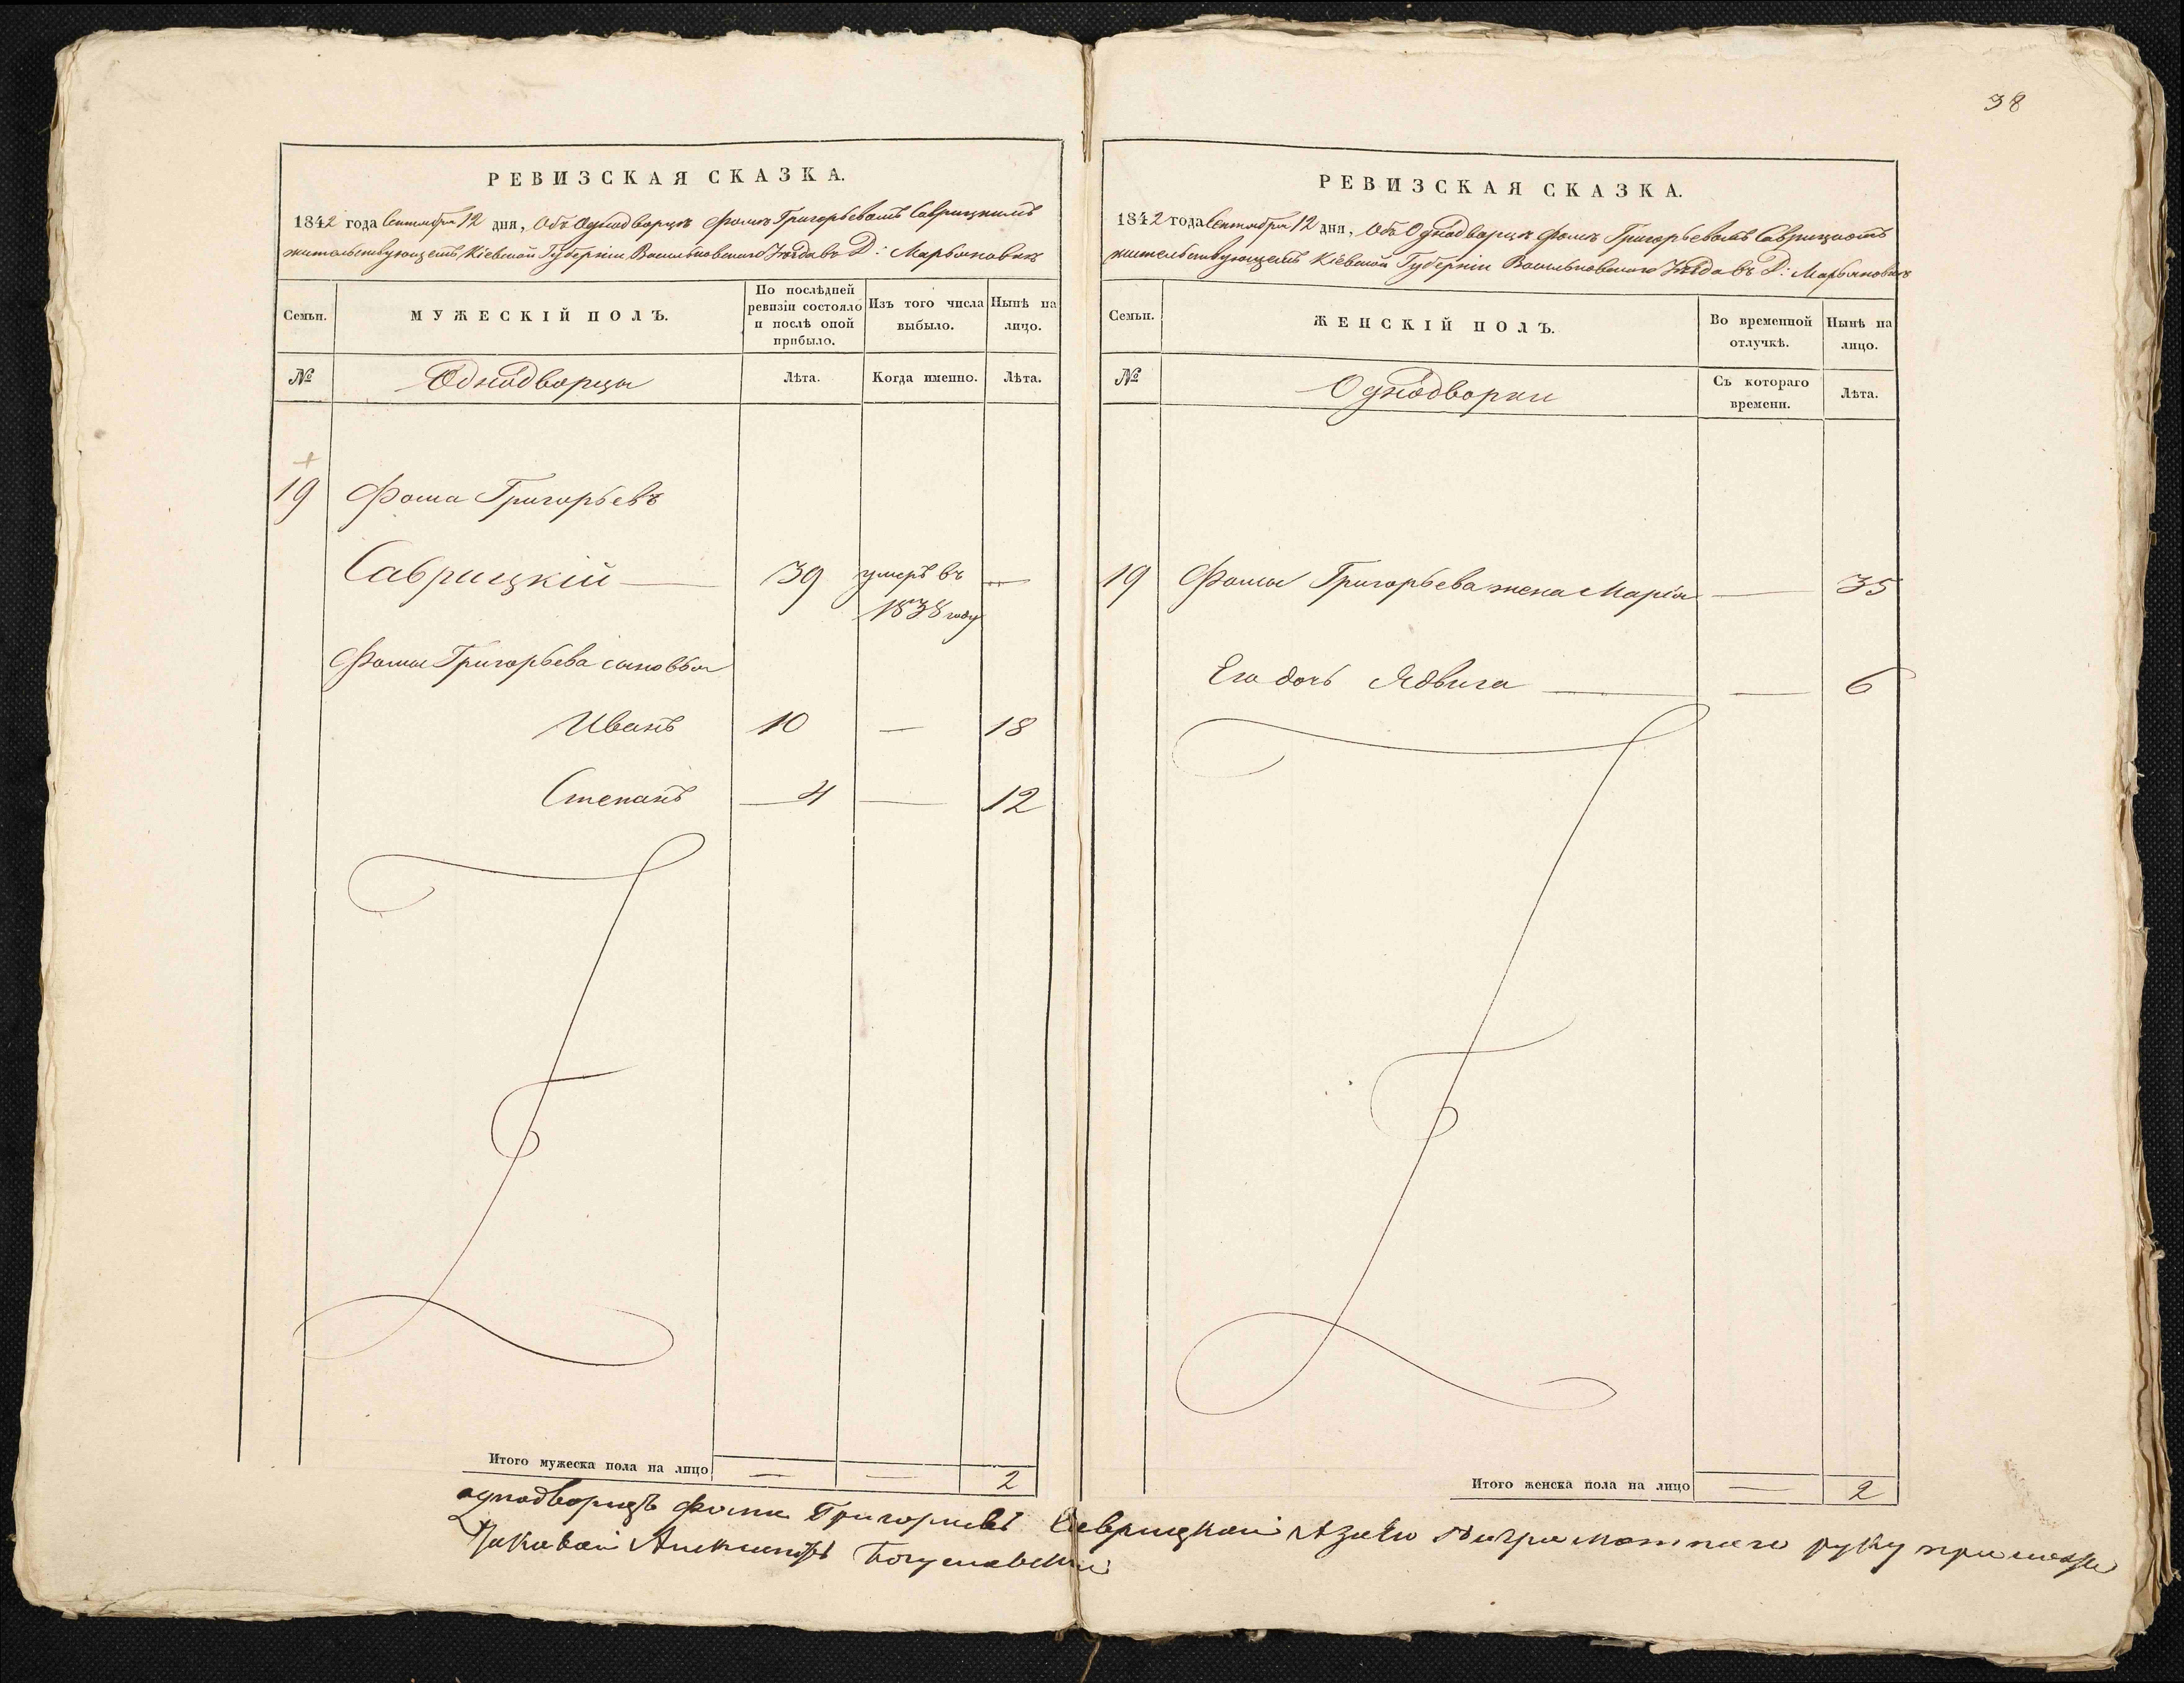 38
РЕВИЗСКАЯ СКАЗКА.
1842 года Сентября 12 дня, Объ Однодворцѣ Фомѣ Григорьевомъ Саврицкимъ
жительствующемъ Кіевской Губерніи Васильковского Уѣзда въ Д: Марьяновкѣ
Семьи.
МУЖЕСКІЙ ПОЛЪ.
По послѣдней
ревизіи состояло
и послѣ оной
прибыло.
Изъ того числа
выбыло.
Нынѣ на
лицо.
№
Однодворцы
Лѣта.
Когда именно.
Лѣта.
19 Фома Григорьевъ
Саврицкій — 39 умеръ въ —
1838 году
Фомы Григорьева сыновья
Иванъ 10 — 18
Степанъ — 4 — 12
Итого мужеска пола на лицо — — 2
РЕВИЗСКАЯ СКАЗКА.
1842 года Сентября 12 дня, Объ Однодворцѣ Фомѣ Григорьевомъ Саврицкомъ
жительствующемъ Кіевской Губерніи Васильковского Уѣзда въ Д: Марьяновкѣ
Семьи.
ЖЕНСКІЙ ПОЛЪ.
Во временной
отлучкѣ.
Нынѣ на
лицо.
№
Однодворки
Съ котораго
времени.
Лѣта.
19 Фомы Григорьева жена Марія — 35
Его дочь Ядвига — — 6
Итого женска пола на лицо — 2
однодворецъ Фома Григорьевъ Саврицкой а за его руку